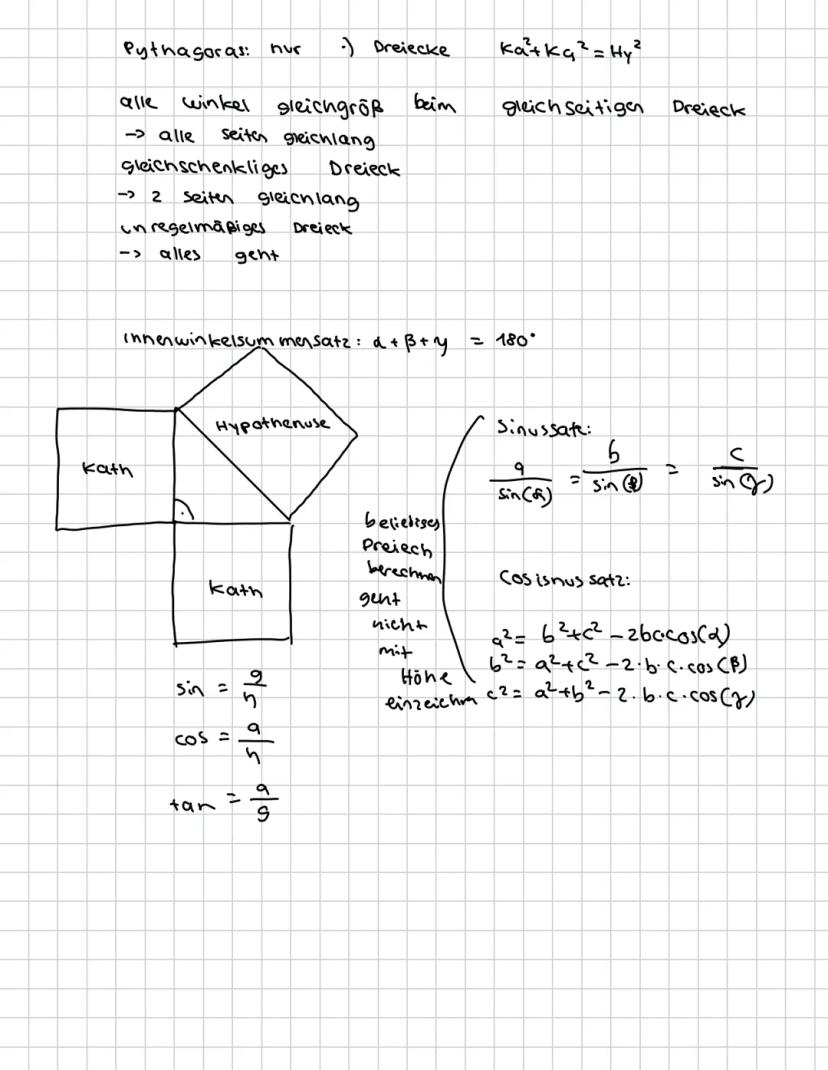 Pythagoras: nur ·) Dreiecke Ka²+Ka²=Hy²
alle winkel gleichgröß beim gleichseitigen Dreieck
-> alle seiten gleichlang
gleichschenkliges Dreieck
-> 2 seiten gleichlang
unregelmäßiges Dreieck
-> alles geht
Innenwinkelsummensatz: α+β+γ = 180°
Hypothenuse
Kath
Kath
sin = g/h
cos = a/h
tan = a/g
beliebiges
Dreiech
berechnen
geht
nicht
mit
Höhe
einzeichnen
Sinussatz:
a/sin(α) = b/sin(β) = c/sin(γ)
Cosisnussatz:
a²= b²+c²-2bc·cos(α)
b²= a²+c²-2·b·c·cos(β)
c²= a²+b²-2·b·c·cos(γ)